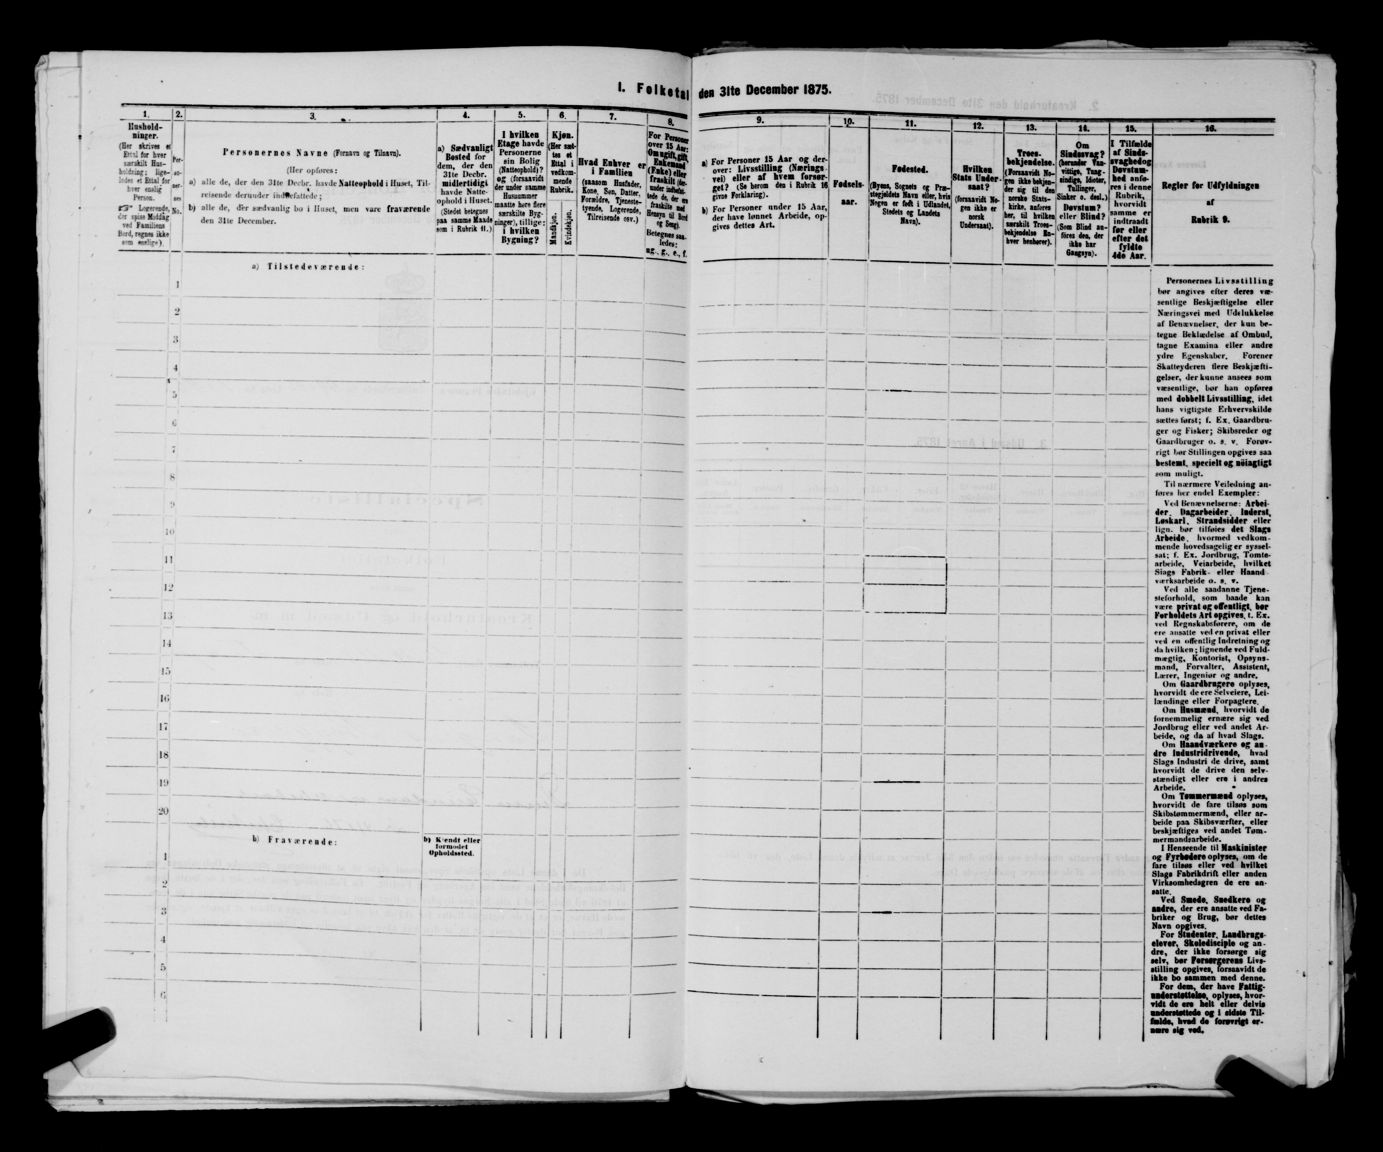 I. Folketal den 31te December 1875.
1.
Hushold-
ninger.
(Her skrives et
Ettal for hver
særskilt Hus-
holdning; lige-
ledes et Ettal for
hver enslig
Person.
Logerende,
der spise Middag
ved Familiens
Bord, regnes ikke
som enslige).
2.
Per-
so-
ner-
nes
No.
3.
Personernes Navne (Fornavn og Tilnavn).
(Her opføres:
a) alle de, der den 31te Decbr. havde Natteophold i Huset, Til-
reisende derunder indbefattede;
b) alle de, der sædvanlig bo i Huset, men vare fraværende
den 31te December.
4.
a) Sædvanligt
Bosted for
dem, der den
31te Decbr.
midlertidigt
havde Natte-
ophold i Huset.
(Stedet betegnes
paa samme Maade
som i Rubrik 11.)
5.
I hvilken
Etage havde
Personerne
sin Bolig
(Natteophold)?
og (forsaavidt
der under samme
Husnummer
maatte høre flere
særskilte Byg-
ninger), tillige:
i hvilken
Bygning?
6.
Kjøn.
(Her sæt-
tes et
Ettal i
vedkom-
mende
Rubrik.)
Mandkjøn.
Kvindekjøn.
7.
Hvad Enhver er
i Familien
(saasom Husfader,
Kone, Søn, Datter,
Forældre, Tjeneste-
tyende, Logerende,
Tilreisende osv.)
8.
For Personer
over 15 Aar:
Om ugift, gift,
Enkemand
(Enke) eller
fraskilt (der-
under indbefat-
tede de, der ere
fraskilte med
Hensyn til Bord
og Seng).
Betegnes saa-
ledes:
ug., g., e., f.
9.
a) For Personer 15 Aar og der-
over: Livsstilling (Nærings-
vei) eller af hvem forsør-
get? (Se herom den i Rubrik 16
givne Forklaring).
b) For Personer under 15 Aar,
der have lønnet Arbeide, op-
gives dettes Art.
10.
Fødsels-
aar.
11.
Fødested.
(Byens, Sognets og Præ-
stegjeldets Navn eller, hvis
Nogen er født i Udlandet,
Stedets og Landets
Navn).
12.
Hvilken
Stats Under-
saat?
(forsaavidt No-
gen ikke er
norsk
Undersaat).
13.
Troes-
bekjendelse.
(Forsaavidt No-
gen ikke bekjen-
der sig til den
norske Stats-
kirke, anføres
her, til hvilken
særskilt Troes-
bekjendelse En-
hver henhører).
14.
Om
Sindssvag?
(herunder Van-
vittige, Tung-
sindige, Idioter,
Tullinger,
Sinker o. desl.)
Døvstum?
eller Blind?
(Som Blind an-
føres den, der
ikke har
Gangsyn).
15.
I Tilfælde
af Sinds-
svaghed og
Døvstum-
hed anfø-
res i denne
Rubrik,
hvorvidt
samme er
indtraadt
før eller
efter det
fyldte
4de Aar.
16.
Regler for Udfyldningen
af
Rubrik 9.
a) Tilstedeværende:
1
2
3
4
5
6
7
8
9
10
11
12
13
14
15
16
17
18
19
20
b) Fraværende:
b) Kjendt eller
formodet
Opholdssted.
1
2
3
4
5
6
Personernes Livsstilling
bør angives efter deres væ-
sentlige Beskjæftigelse eller
Næringsvei med Udelukkelse
af Benævnelser, der kun be-
tegne Beklædelse af Ombud,
tagne Examina eller andre
ydre Egenskaber. Forener
Skatteyderen flere Beskjæfti-
gelser, der kunne ansees som
væsentlige, bør han opføres
med dobbelt Livsstilling, idet
hans vigtigste Erhvervskilde
sættes først; f. Ex. Gaardbru-
ger og Fisker; Skibsreder og
Gaardbruger o. s. v. Forøv-
rigt bør Stillingen opgives saa
bestemt, specielt og nöiagtigt
som muligt.
Til nærmere Veiledning an-
føres her endel Exempler:
Ved Benævnelserne: Arbei-
der, Dagarbeider, Inderst,
Løskarl, Strandsidder eller
lign. bør tilføies det Slags
Arbeide, hvormed vedkom-
mende hovedsagelig er syssel-
sat; f. Ex. Jordbrug, Tomte-
arbeide, Veiarbeide, hvilket
Slags Fabrik- eller Haand-
værksarbeide o. s. v.
Ved alle saadanne Tjene-
steforhold, som baade kan
være privat og offentligt, bør
Forholdets Art opgives, f. Ex.
ved Regnskabsførere, om de
ere ansatte ved en privat eller
ved en offentlig Indretning og
da hvilken; lignende ved Fuld-
mægtig, Kontorist, Opsyns-
mand, Forvalter, Assistent,
Lærer, Ingeniør og andre.
Om Gaardbrugere oplyses,
hvorvidt de ere Selveiere, Lei-
lændinge eller Forpagtere.
Om Husmænd, hvorvidt de
fornemmelig ernære sig ved
Jordbrug eller ved andet Ar-
beide, og da af hvad Slags.
Om Haandværkere og an-
dre Industridrivende, hvad
Slags Industri de drive, samt
hvorvidt de drive den selv-
stændigt eller ere i andres
Arbeide.
Om Tømmermænd oplyses,
hvorvidt de fare tilsøs som
Skibstømmermænd, eller ar-
beide paa Skibsværfter, eller
beskjæftiges ved andet Tøm-
mermandsarbeide.
I Henseende til Maskinister
og Fyrbødere oplyses, om de
fare tilsøs eller ved hvilket
Slags Fabrikdrift eller anden
Virksomhedsgren de ere an-
satte.
Ved Smede, Snedkere og
andre, der ere ansatte ved Fa-
briker og Brug, bør dettes
Navn opgives.
For Studenter, Landbrugs-
elever, Skoledisciple og an-
dre, der ikke forsørge sig
selv, bør Forsørgerens Livs-
stilling opgives, forsaavidt de
ikke bo sammen med denne.
For dem, der have Fattig-
understøttelse, oplyses, hvor-
vidt de ere helt eller delvis
understøttede og i sidste Til-
fælde, hvad de forøvrigt er-
nære sig ved.